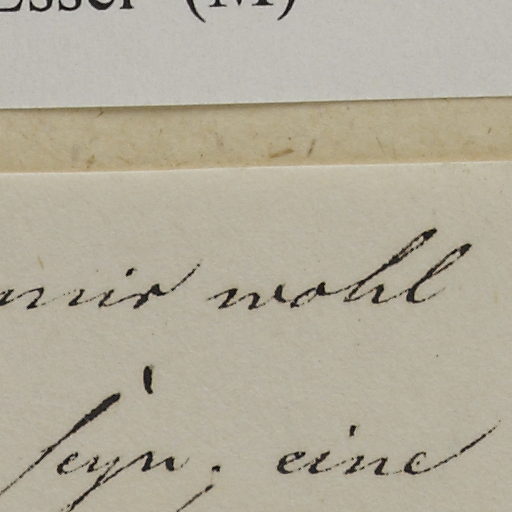 Esser (M)
mir wohl
seyn. eine